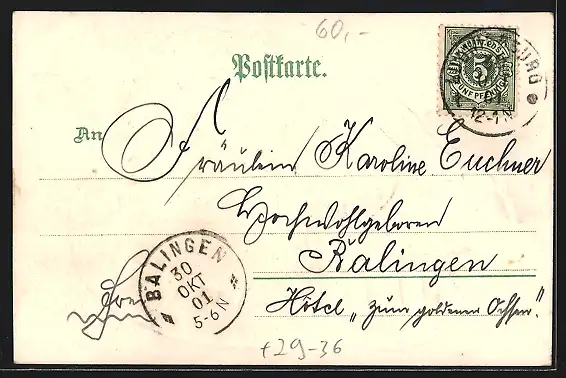 60,-
Postkarte.
An
Fräulein Karoline Euchner
Hochwohlgeboren
Balingen
Hôtel „zum goldenen Ochsen".
BALINGEN
30
OKT
01
5-6 N
5
FÜNF PFENNIG
12-1 N
+29-36